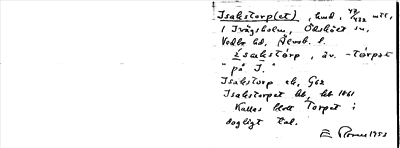 Isakstorp(et), hmd, 47/432 mtl,
1 Ivägsholm, Ödskölt sn,
Vedbo hd, Älvsb. l.
ísakstórp, äv. -tórpət
"på I."
Isakstorp ek, G62
Isakstorpet hb, hb 1861
Kallas blott Torpet i
dagligt tal.
1953